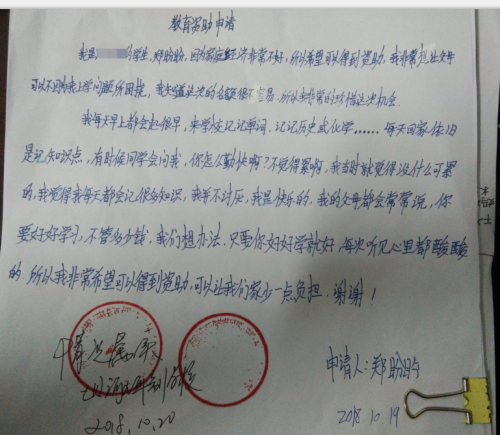 教育资助申请
我是 的学生,郑盼盼,因为家庭经济非常不好,所以希望可以得到资助,我非常想让父母
可以不因为我上学问题所困扰,我知道这次的名额很不容易,所以我非常的珍惜这次机会.
我每天早上都会起很早,来学校记记单词,记记历史或化学,……每天回家依旧
是记知识点,有时候同学会问我,你怎么勤快啊?不觉得累啊,我当时就觉得没什么可累
的,我觉得我每天都会记很多知识,我并不讨厌,我是快乐的,我的父母都会常常说,你
要好好学习,不管多少钱,我们想办法,只要你好好学就好,每次听见心里都酸酸
的.所以我非常希望可以得到资助,可以让我们家少一点负担.谢谢!
申请人:郑盼盼
2018.10.20
2018.10.19